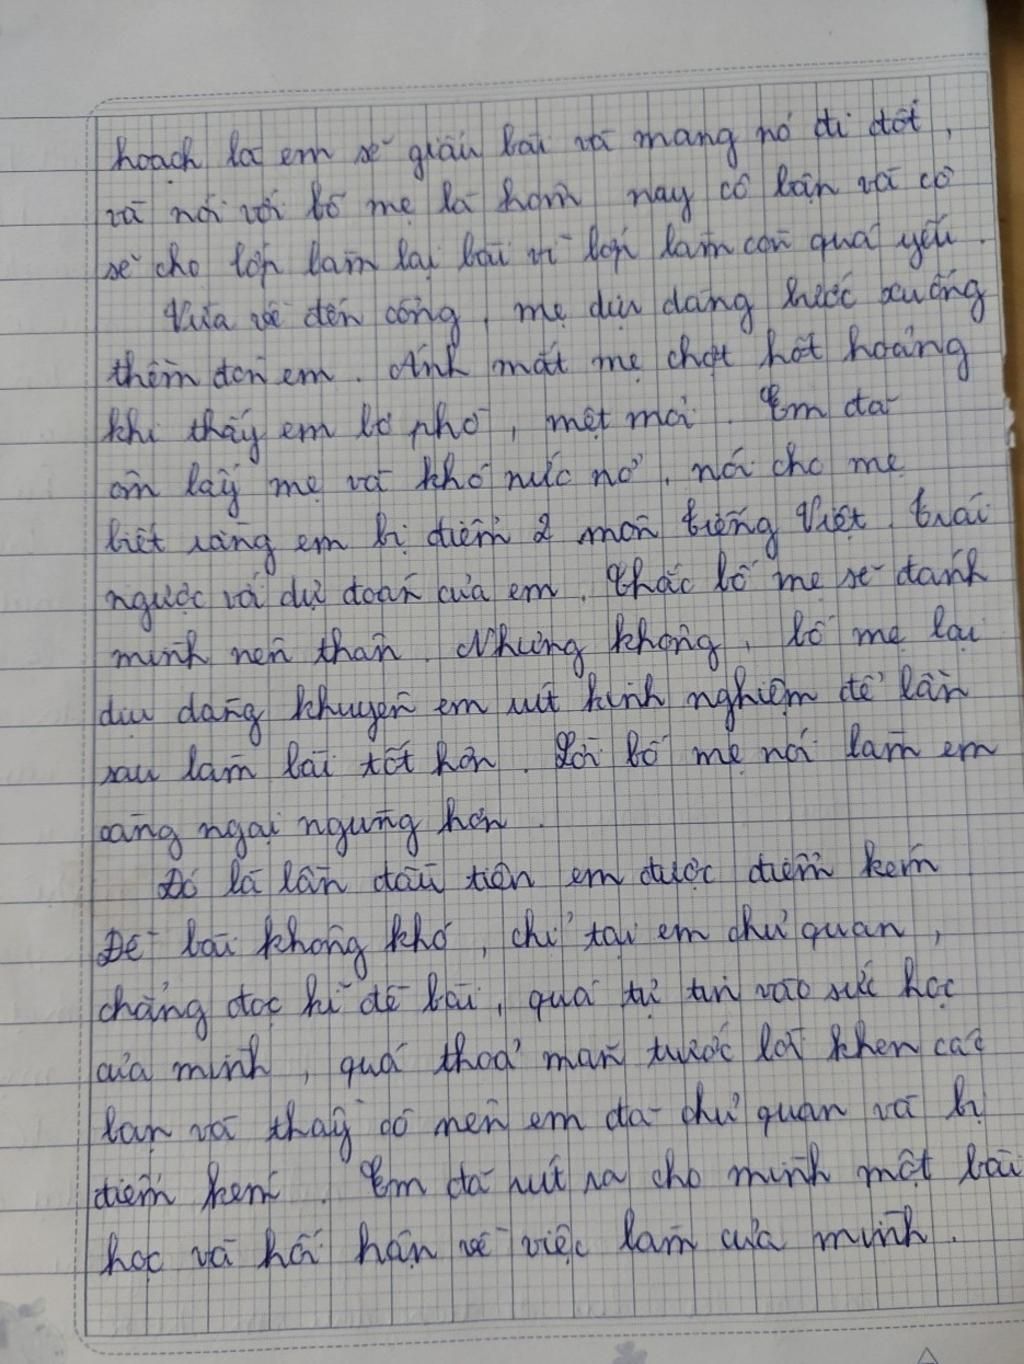 hoạch là em sẽ giấu bài và mang nó đi đốt,
và nói với bố mẹ là hôm nay cô bận và cô
sẽ cho lớp làm lại bài vì lớp làm còn quá yếu.
Vừa về đến cổng, mẹ dịu dàng bước xuống
thềm đón em. Ánh mắt mẹ chợt hốt hoảng
khi thấy em bơ phờ, mệt mỏi. Em đã
ôm lấy mẹ và khó nức nở, nói cho mẹ
biết rằng em bị điểm 2 môn tiếng Việt. trái
ngược và dự đoán của em. Chắc bố mẹ sẽ đánh
mình nên thân. Nhưng không, bố mẹ lại
dịu dàng khuyên em rút kinh nghiệm để lần
sau làm bài tốt hơn. Lời bố mẹ nói làm em
càng ngại ngùng hơn.
Đó là lần đầu tiên em được điểm kém
Đề bài không khó, chỉ tại em chủ quan,
chẳng đọc kĩ đề bài, quá tự tin vào sức học
của mình, quá thoả mãn trước lời khen các
bạn và thầy cô nên em đã chủ quan và bị
điểm kém. Em đã rút ra cho mình một bài
học và hối hận về việc làm của mình.